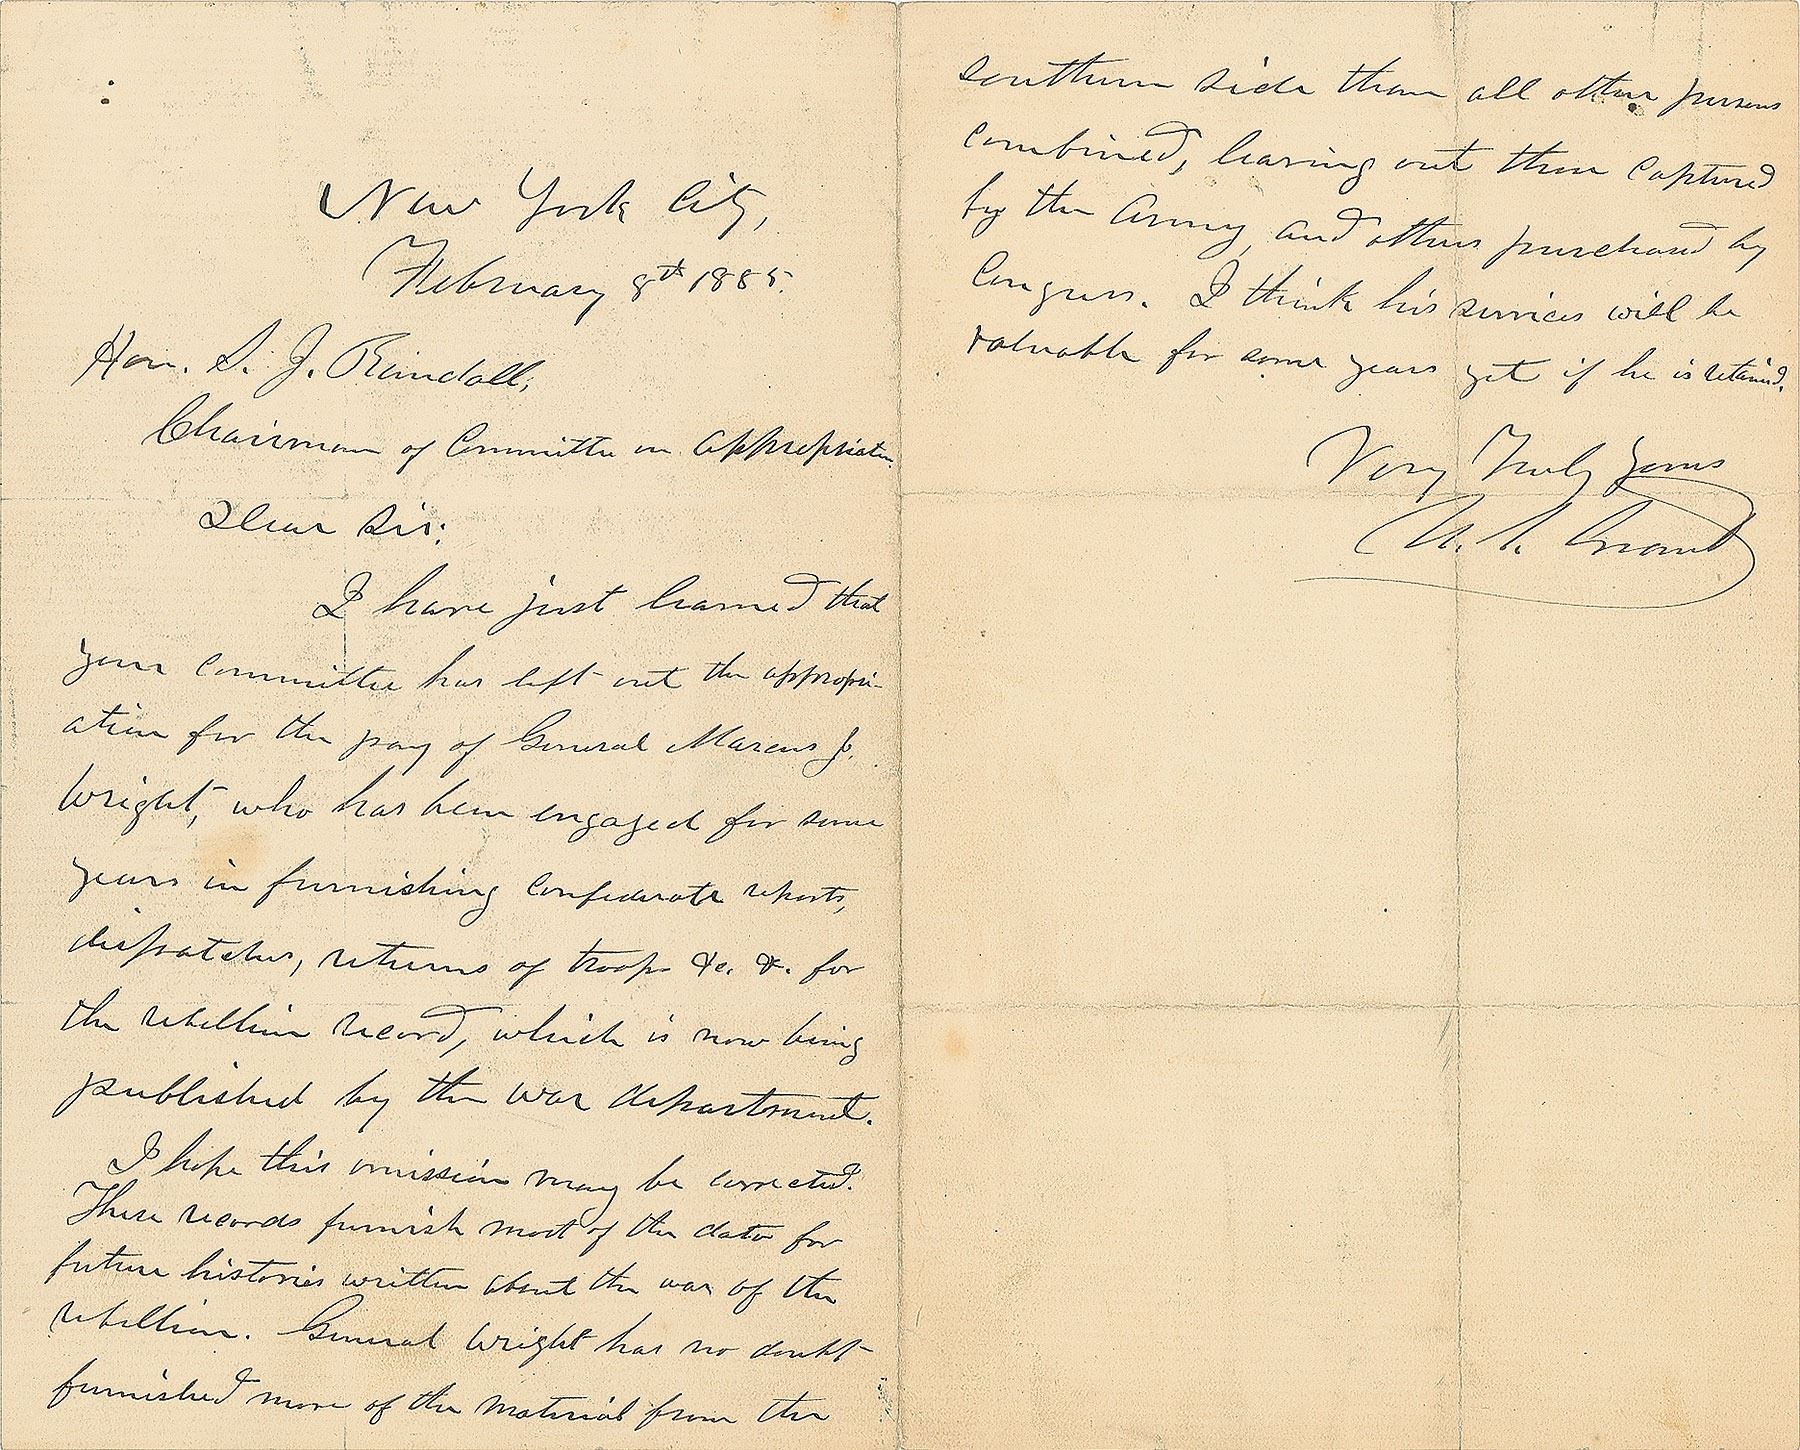 New York City,
February 8th 1885.
Hon. S. J. Randall,
Chairman of Committee on appropriation.
Dear Sir:
I have just learned that
your committee has left out the appropri-
ation for the pay of General Marcus J.
Wright, who has been engaged for some
years in furnishing Confederate reports,
dispatches, returns of troops &c. &. for
the rebellion record, which is now being
published by the war department.
I hope this omission may be corrected.
These records furnish most of the data for
future histories written about the war of the
rebellion. General Wright has no doubt
furnished more of the material from the
southern side than all other persons
combined, leaving out those captured
by the Army, and others purchased by
Congress. I think his services will be
valuable for some years yet if he is retained.
Very Truly yours
U. S. Grant